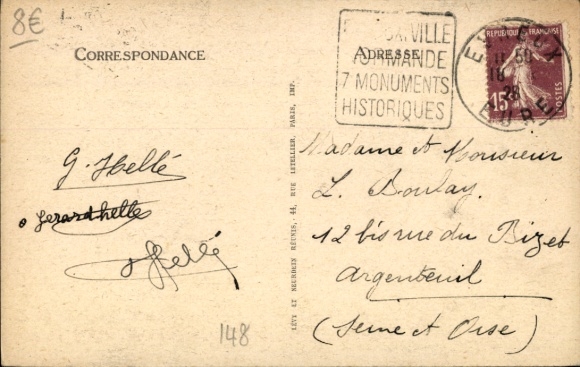 8€
CORRESPONDANCE
ADRESSE
VILLE
NORMANDE
7 MONUMENTS
HISTORIQUES
EVREUX
EURE
11 50
18
28
RÉPUBLIQUE FRANÇAISE
15
POSTES
G. Hellé
Gerard helle
Hellé
148
LÉVY ET NEURDEIN RÉUNIS, 44, RUE LETELLIER, PARIS, IMP.
Madame et Monsieur
L. Boulay.
12 bis rue du Bizet
Argenteuil
(Seine et Oise)